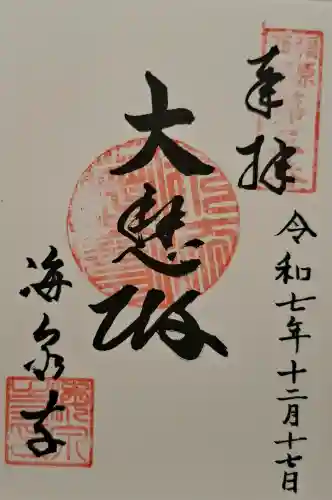 奉拝
令和七年十二月十七日
大悲殿
海泉寺